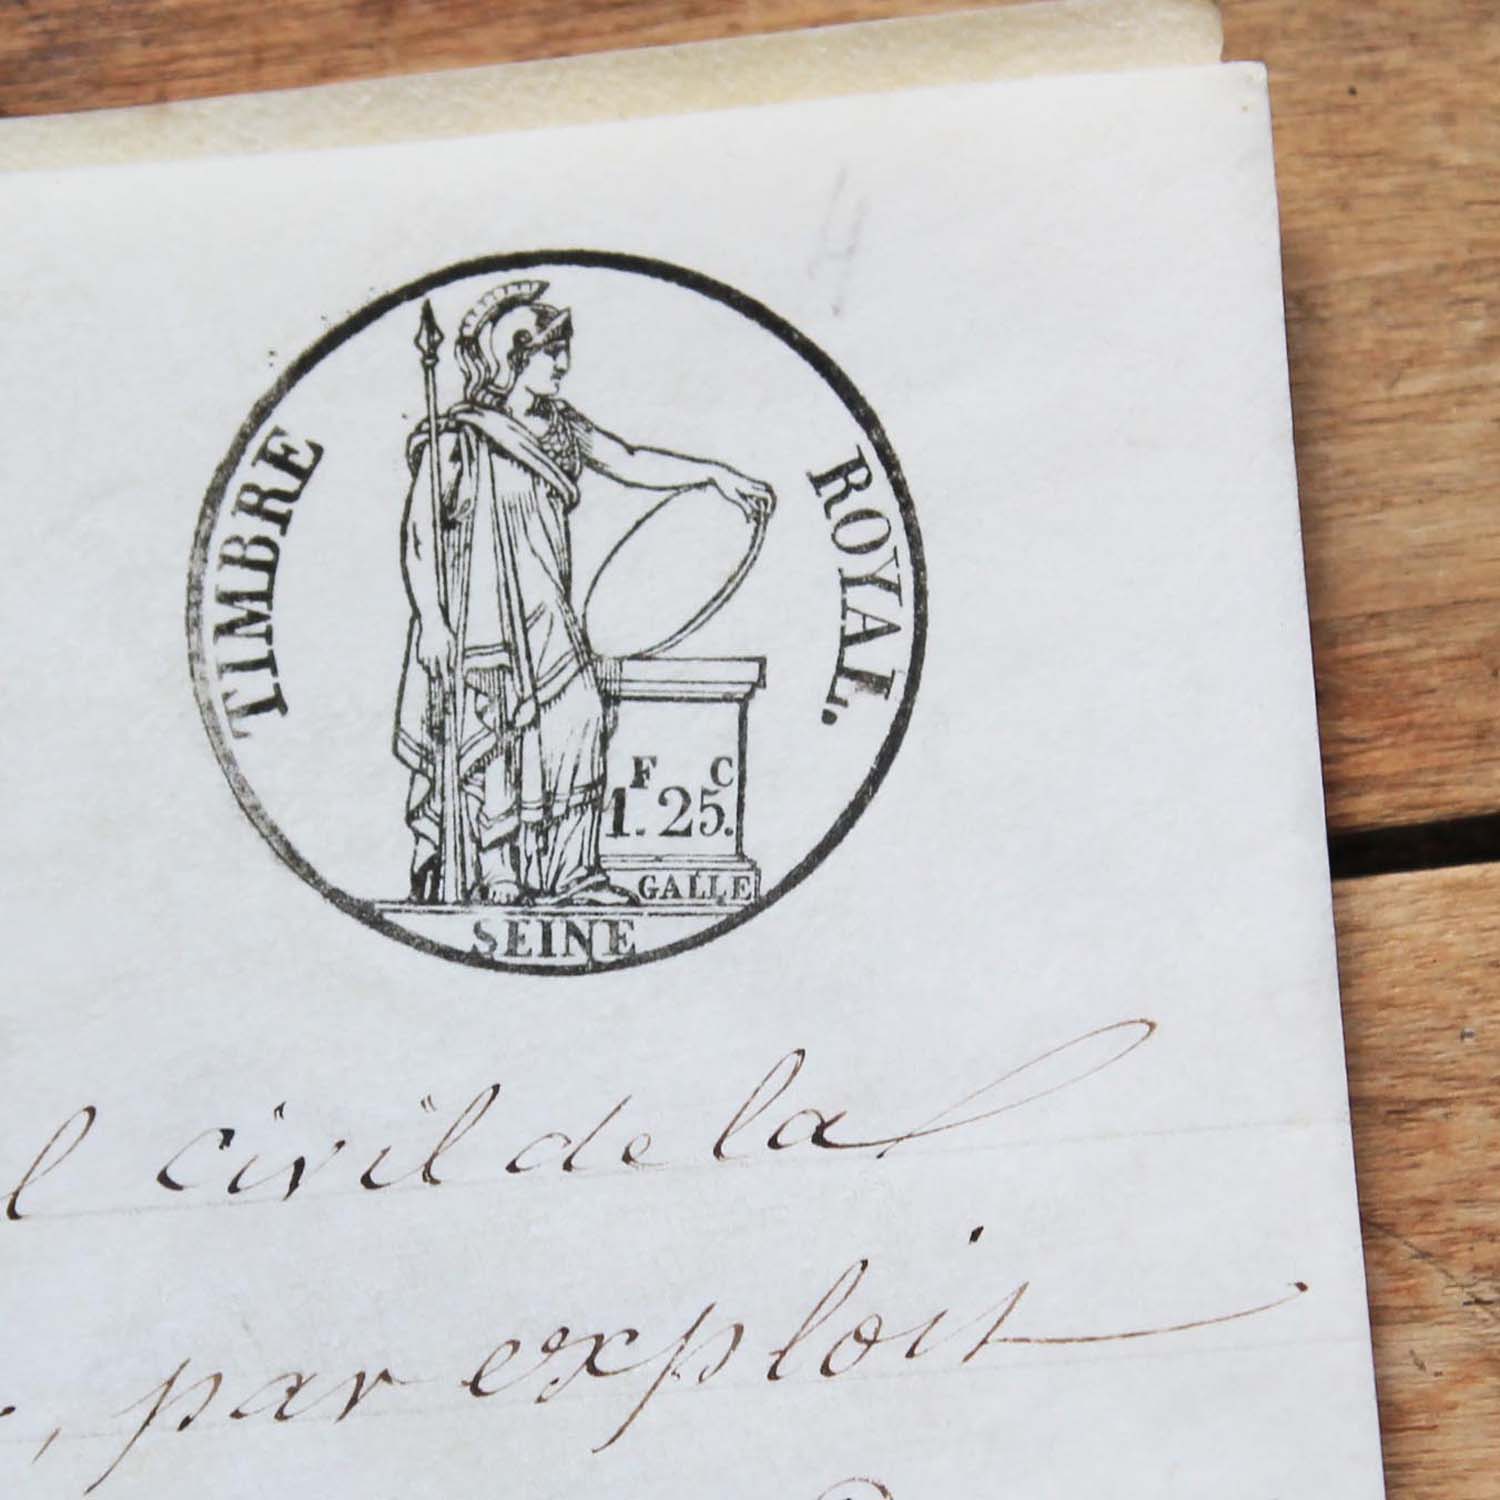 TIMBRE ROYAL.
F C
1.25.
GALLE
SEINE
l civil de la
, par exploit